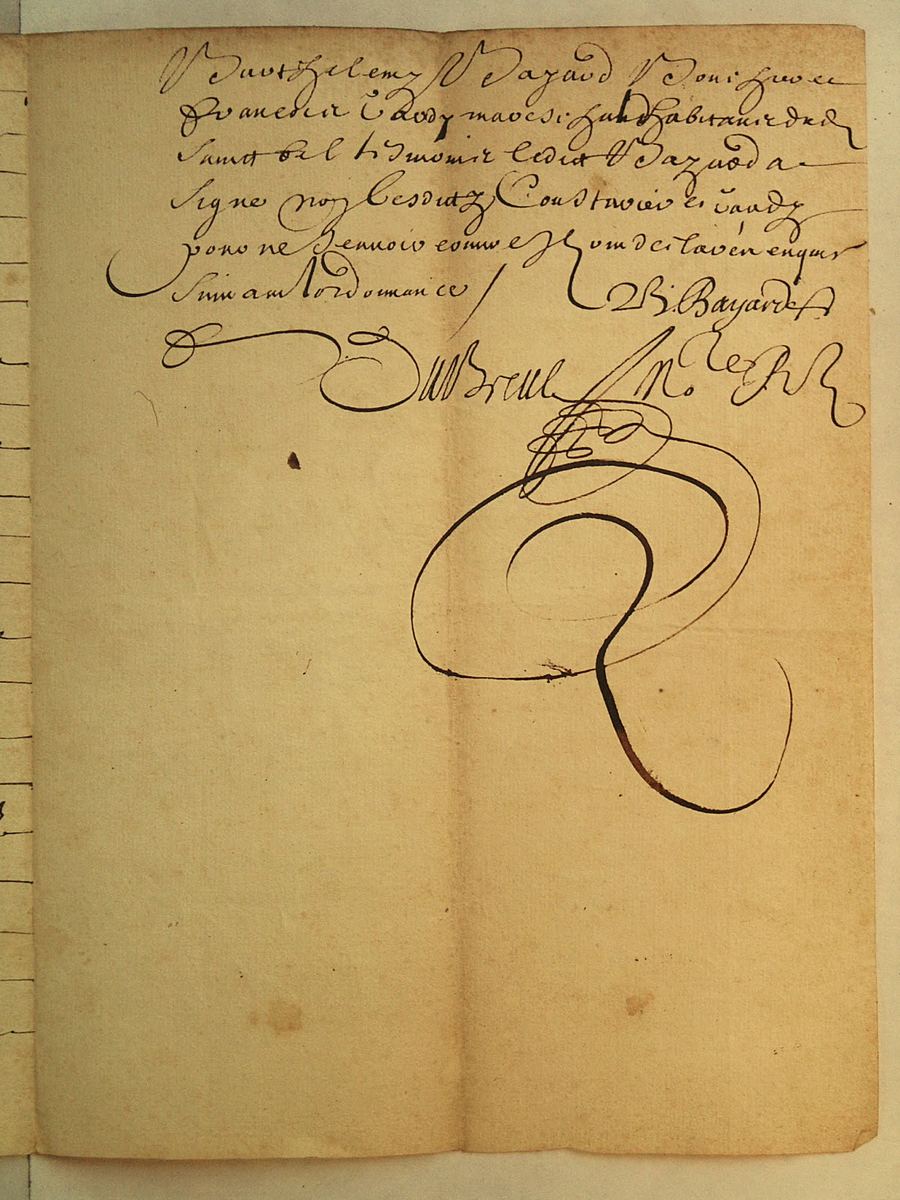 Barthelemy Bayard Bouchier et
francois Vaudy mareschal habitants dud
sainct bel tesmoins ledict Bayard a
signe non lesdictz Cousturier et vaudy
pour ne scavoir comme ilz ont desclaré enquis
suivant lordonnance / B. Bayard
DuBreul No.re R